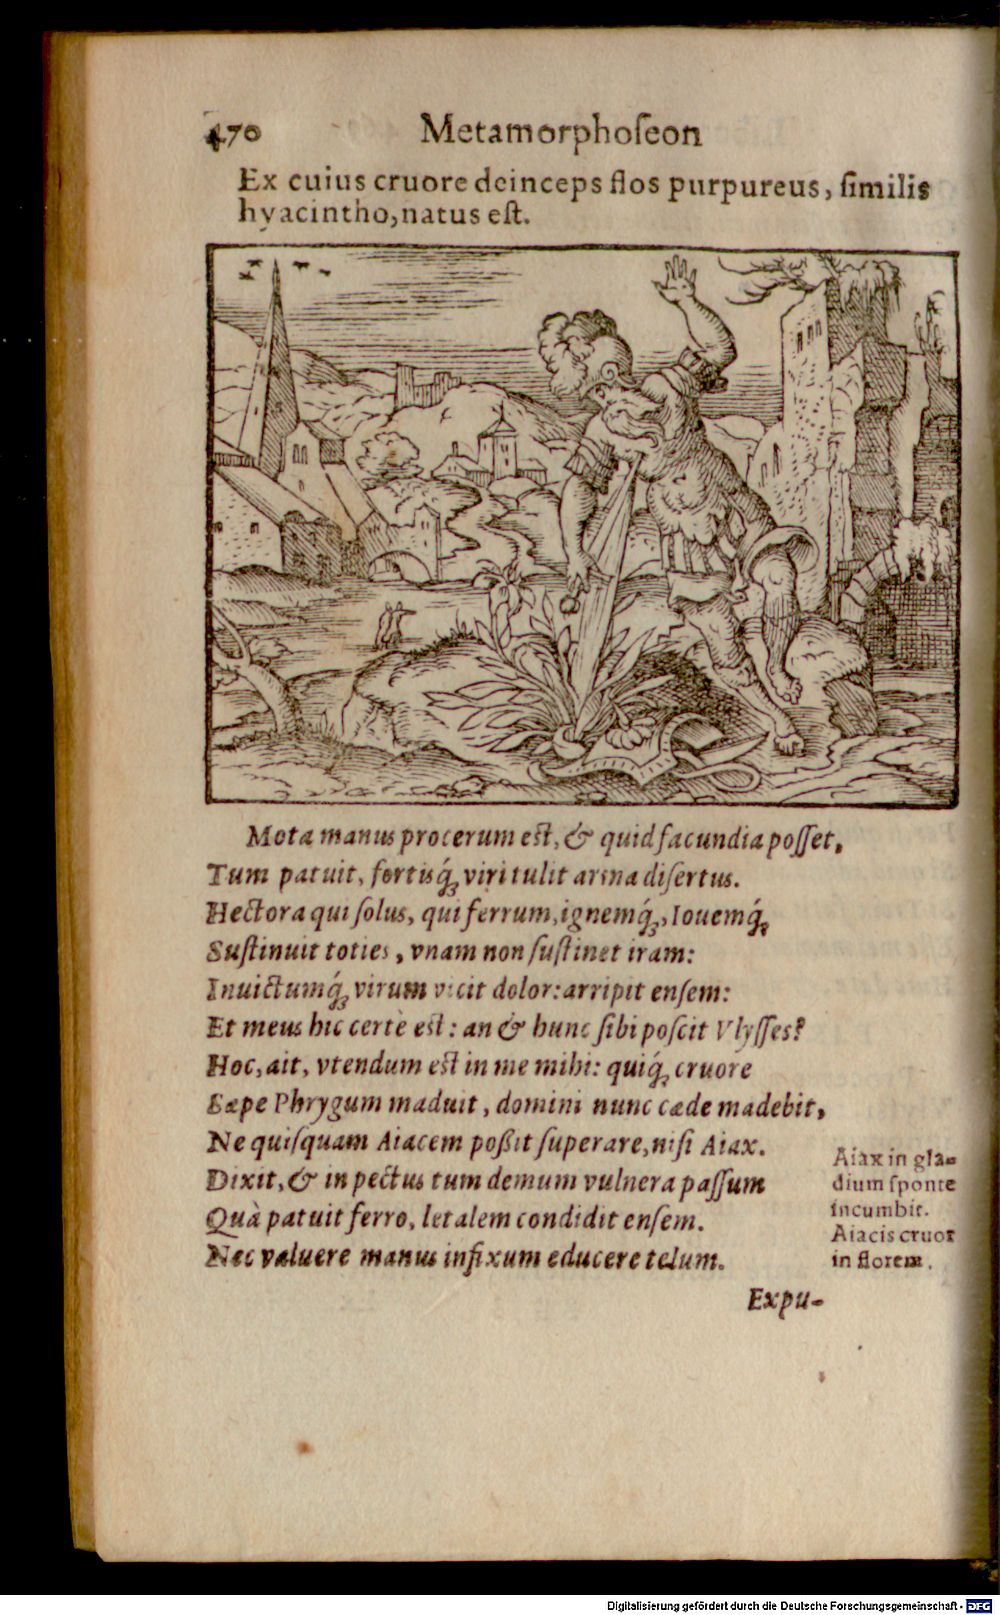 470 Metamorphoſeon
Ex cuius cruore deinceps flos purpureus, ſimilis
hyacintho, natus eſt.
Mota manus procerum eſt, & quid facundia poſſet,
Tum patuit, fortisq́ꝫ viri tulit arma diſertus.
Hectora qui ſolus, qui ferrum, ignemq́ꝫ, Iouemq́ꝫ
Suſtinuit toties, vnam non ſuſtinet iram:
Inuictumq́ꝫ virum vicit dolor: arripit enſem:
Et meus hic certè eſt: an & hunc ſibi poſcit Vlyſſes?
Hoc, ait, vtendum eſt in me mihi: quiq́ꝫ cruore
Sæpe Phrygum maduit, domini nunc cæde madebit,
Ne quiſquam Aiacem poßit ſuperare, niſi Aiax.
Dixit, & in pectus tum demum vulnera paſſum
Quà patuit ferro, letalem condidit enſem.
Nec valuere manus infixum educere telum.
Aiax in gla-
dium ſponte
incumbit.
Aiacis cruor
in florem.
Expu-
Digitalisierung gefördert durch die Deutsche Forschungsgemeinschaft - DFG